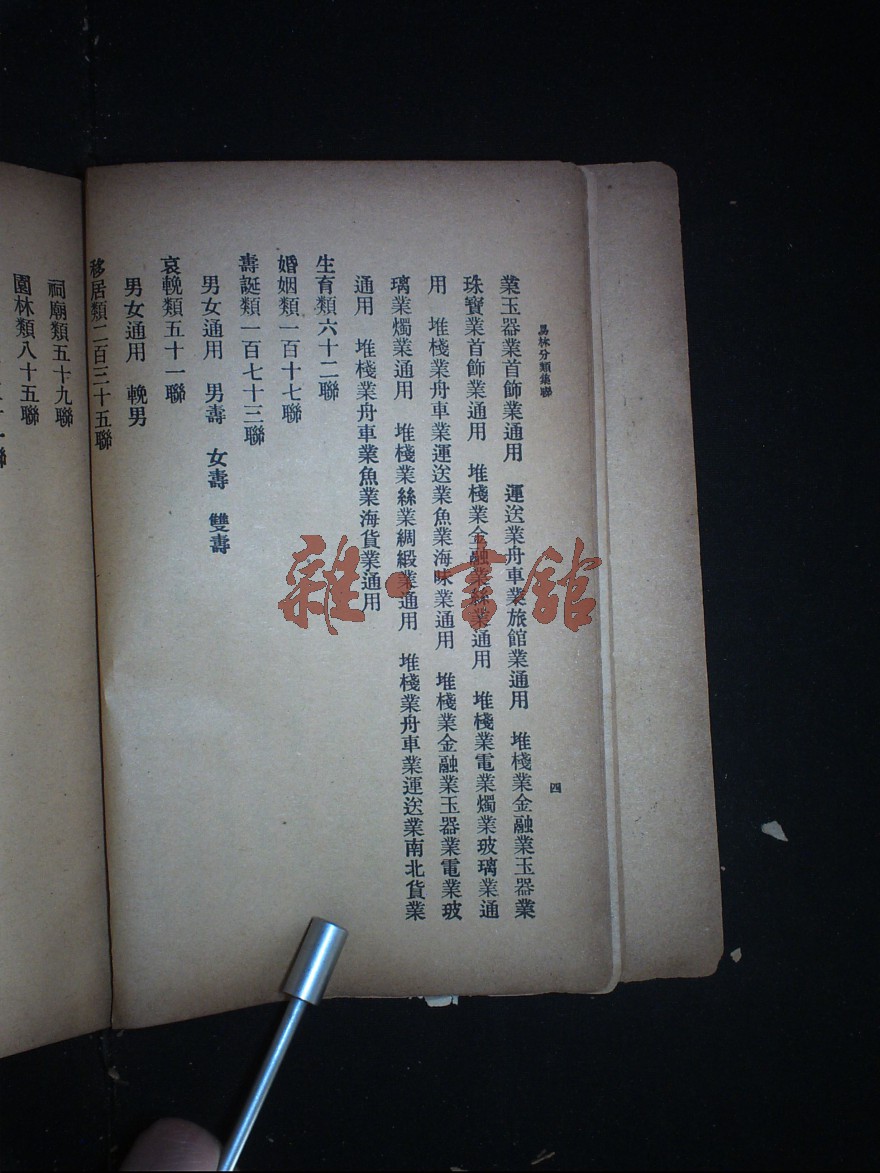 易林分類集聯
四
業玉器業首飾業通用　運送業舟車業旅館業通用　堆棧業金融業玉器業
珠寶業首飾業通用　堆棧業金融業絲業通用　堆棧業電業燭業玻璃業通
用　堆棧業舟車業運送業魚業海味業通用　堆棧業金融業玉器業電業玻
璃業燭業通用　堆棧業絲業綢緞業通用　堆棧業舟車業運送業南北貨業
通用　堆棧業舟車業魚業海貨業通用
生育類六十二聯
婚姻類一百十七聯
壽誕類一百七十三聯
男女通用　男壽　女壽　雙壽
哀輓類五十一聯
男女通用　輓男
移居類二百三十五聯
祠廟類五十九聯
園林類八十五聯
雜·書館